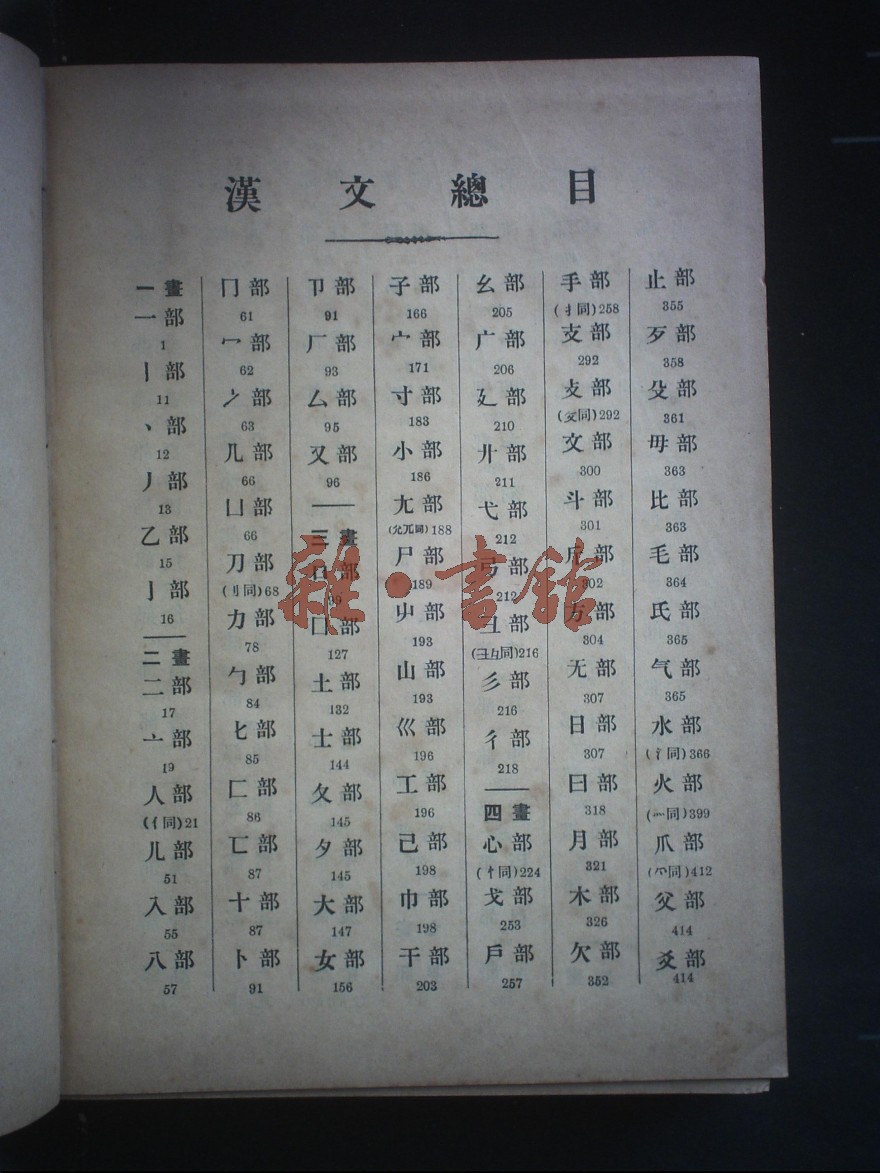 漢文總目
一畫
一部
1
丨部
11
丶部
12
丿部
13
乙部
15
亅部
16
二畫
二部
17
亠部
19
人部
(亻同)21
儿部
51
入部
55
八部
57
冂部
61
冖部
62
冫部
63
几部
66
凵部
66
刀部
(刂同)68
力部
78
勹部
84
匕部
85
匚部
86
匸部
87
十部
87
卜部
91
卩部
91
厂部
93
厶部
95
又部
96
三畫
口部
99
囗部
127
土部
132
士部
144
夂部
145
夕部
145
大部
147
女部
156
子部
166
宀部
171
寸部
183
小部
186
尢部
(尣兀同)188
尸部
189
屮部
193
山部
193
巛部
196
工部
196
己部
198
巾部
198
干部
203
幺部
205
广部
206
廴部
210
廾部
211
弋部
212
弓部
212
彑部
(彐彑同)216
彡部
216
彳部
218
四畫
心部
(忄同)224
戈部
253
戶部
257
手部
(扌同)258
支部
292
攴部
(攵同)292
文部
300
斗部
301
斤部
302
方部
304
无部
307
日部
307
曰部
318
月部
321
木部
326
欠部
352
止部
355
歹部
358
殳部
361
毋部
363
比部
363
毛部
364
氏部
365
气部
365
水部
(氵同)366
火部
(灬同)399
爪部
(爫同)412
父部
414
爻部
414
雜·書館